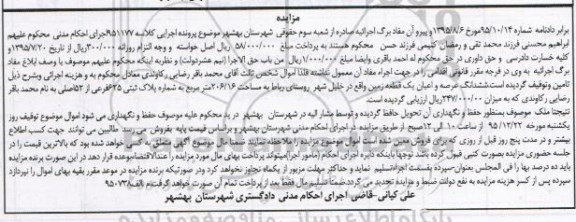 مزایده
برابر دادنامه شماره ۹۵/۱۰/۱۴ مورخ ۱۳۹۵/۸/۶ و پیرو آن مفاد برگ اجرائیه صادره از شعبه سوم حقوقی شهرستان بهشهر موضوع پرونده اجرایی کلاسه ۹۵۱۱۷۷ اجرای احکام مدنی محکوم علیهم
ابراهیم محسنی فرزند محمد تقی و رمضان کئیسی فرزند حسن محکوم هستند به پرداخت مبلغ ۵۸/۰۰۰/۰۰۰ ریال اصل خواسته و وجه التزام روزانه ۳۰۰/۰۰۰ ریال از تاریخ ۱۳۹۵/۷/۲۰ و
کلیه خسارت دادرسی و حق داوری در حق محکوم له احمد باقری وایضا مبلغ ۱/۰۰۰/۰۰۰ ریال من باب حق الاجرا (نیم عشر دولت) و نظر به اینکه محکوم علیهم موصوف با وصف ابلاغ مفاد
برگ اجرائیه به وی در فرجه مقرر قانونی اقدامی را در جهت اجراء مفاد آن معمول نداشته فلذا اموال شخص ثالث آقای محمد باقر رضایی رکاوندی معادل محکوم به و هزینه اجرائی وبشرح ذیل
تامین وتوقیف گردیده است. ششدانگ عرصه و اعیان یک قطعه زمین واقع در خلیل شهر روستای رباط به مساحت ۲۰۶/۱۶ متر مربع به شماره پلاک ثبتی ۶۷۵ فرعی از ۵۲ اصلی به نام محمد باقر
رضایی رکاوندی که به میزان ۲۳۷/۰۰۰/۰۰۰ ریال ارزیابی گردیده است.
نتیجتا ملک موصوف بمنظور حفظ و نگهداری آن تحویل حافظ گردیده و توسط مشار الیه در شهرستان بهشهر در ید محکوم علیه موصوف حفظ و نگهداری می شود اموال موضوع توقیف روز
یکشنبه مورخه ۹۵/۱۲/۲۲ از ساعت ۱۰ الی ۱۲ صبح از طریق مزایده در اجرای احکام مدنی شهرستان بهشهر و براساس قیمت پایه بفروش می رسد طالبین می توانند جهت کسب اطلاع
بیشتر و در مدت پنج روز قبل از روزی که برای فروش معین شده است اموال موضوع مزایده را ملاحظه نمایند
جلسه حضوری مزایده بصورت کتبی قبول کرده باشد
باید ده درصد بها را فی المجلس بعنوان سپرده بقسمت اجرا تسلیم نماید و حداکثر مهلت مزبور از یکماه تجاوز نخواهد کرد ودر صورتیکه برنده مزایده در موعد مقرر بقیه بهای اموال را نپردازد
سپرده پس از کسر هزینه مزایده به نفع دولت ضبط و مزایده تجدید می گردد. ضمنا تسلیم مال فقط بعد از پرداخت تمام آن صورت خواهد گرفت. م/الف ۹۵۰۷۳
علی کیانی - قاضی اجرای احکام مدنی دادگستری شهرستان بهشهر